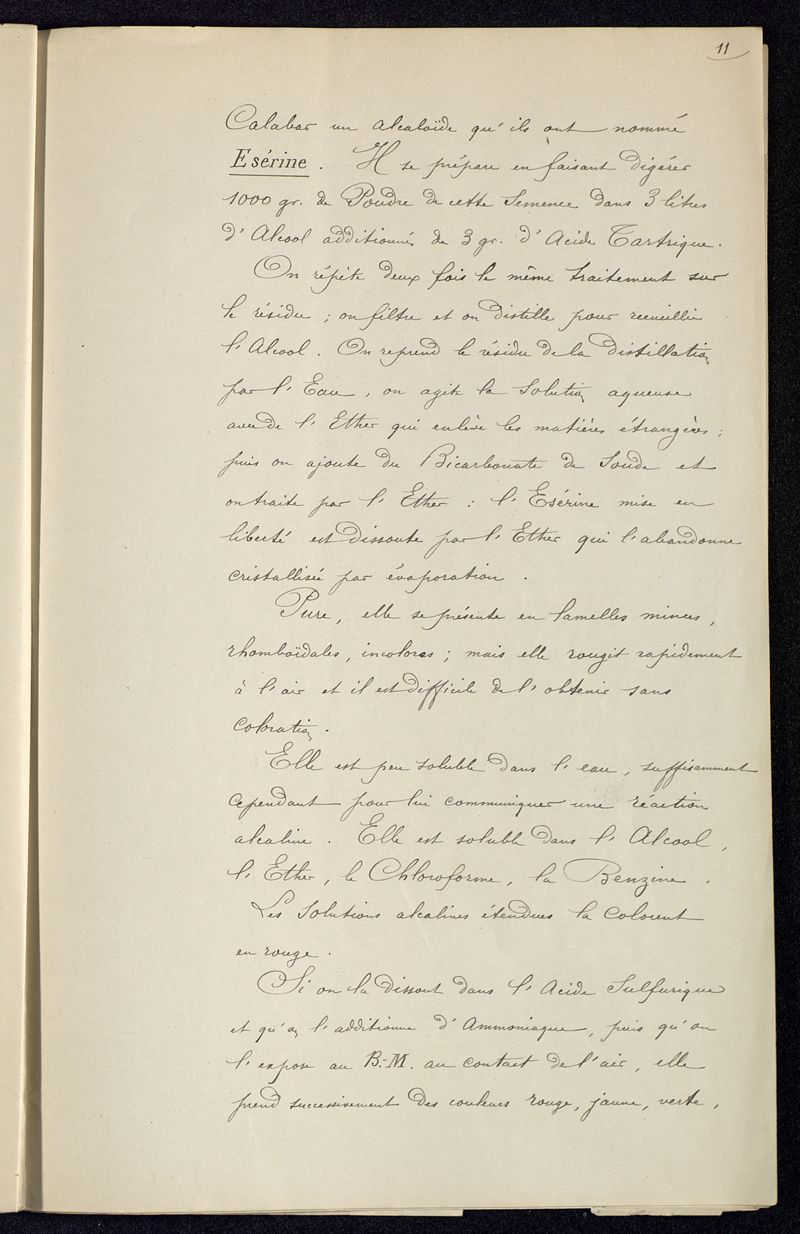 11
Calabar un alcaloïde qu'ils ont nommé
Esérine. Il se prépare en faisant digérer
1000 gr. de Poudre de cette Semence dans 3 litres
d'Alcool additionnés de 3 gr. d'Acide Tartrique.
On répète deux fois le même traitement sur
le résidu ; on filtre et on distille pour recueillir
l'Alcool. On reprend le résidu de la distillation
par l'Eau, on agite la solution aqueuse
avec de l'Ether qui enlève les matières étrangères ;
puis on ajoute du Bicarbonate de Soude et
on traite par l'Ether : l'Esérine mise en
liberté est dissoute par l'Ether qui l'abandonne
cristallisée par évaporation.
Pure, elle se présente en lamelles minces,
rhomboïdales, incolores ; mais elle rougit rapidement
à l'air et il est difficile de l'obtenir sans
coloration.
Elle est peu soluble dans l'eau, suffisamment
cependant pour lui communiquer une réaction
alcaline. Elle est soluble dans l'Alcool,
l'Ether, le Chloroforme, la Benzine.
Les solutions alcalines étendues la colorent
en rouge.
Si on la dissout dans l'Acide Sulfurique
et qu'on l'additionne d'Ammoniaque, puis qu'on
l'expose au B.-M. au contact de l'air, elle
prend successivement des couleurs rouge, jaune, verte,